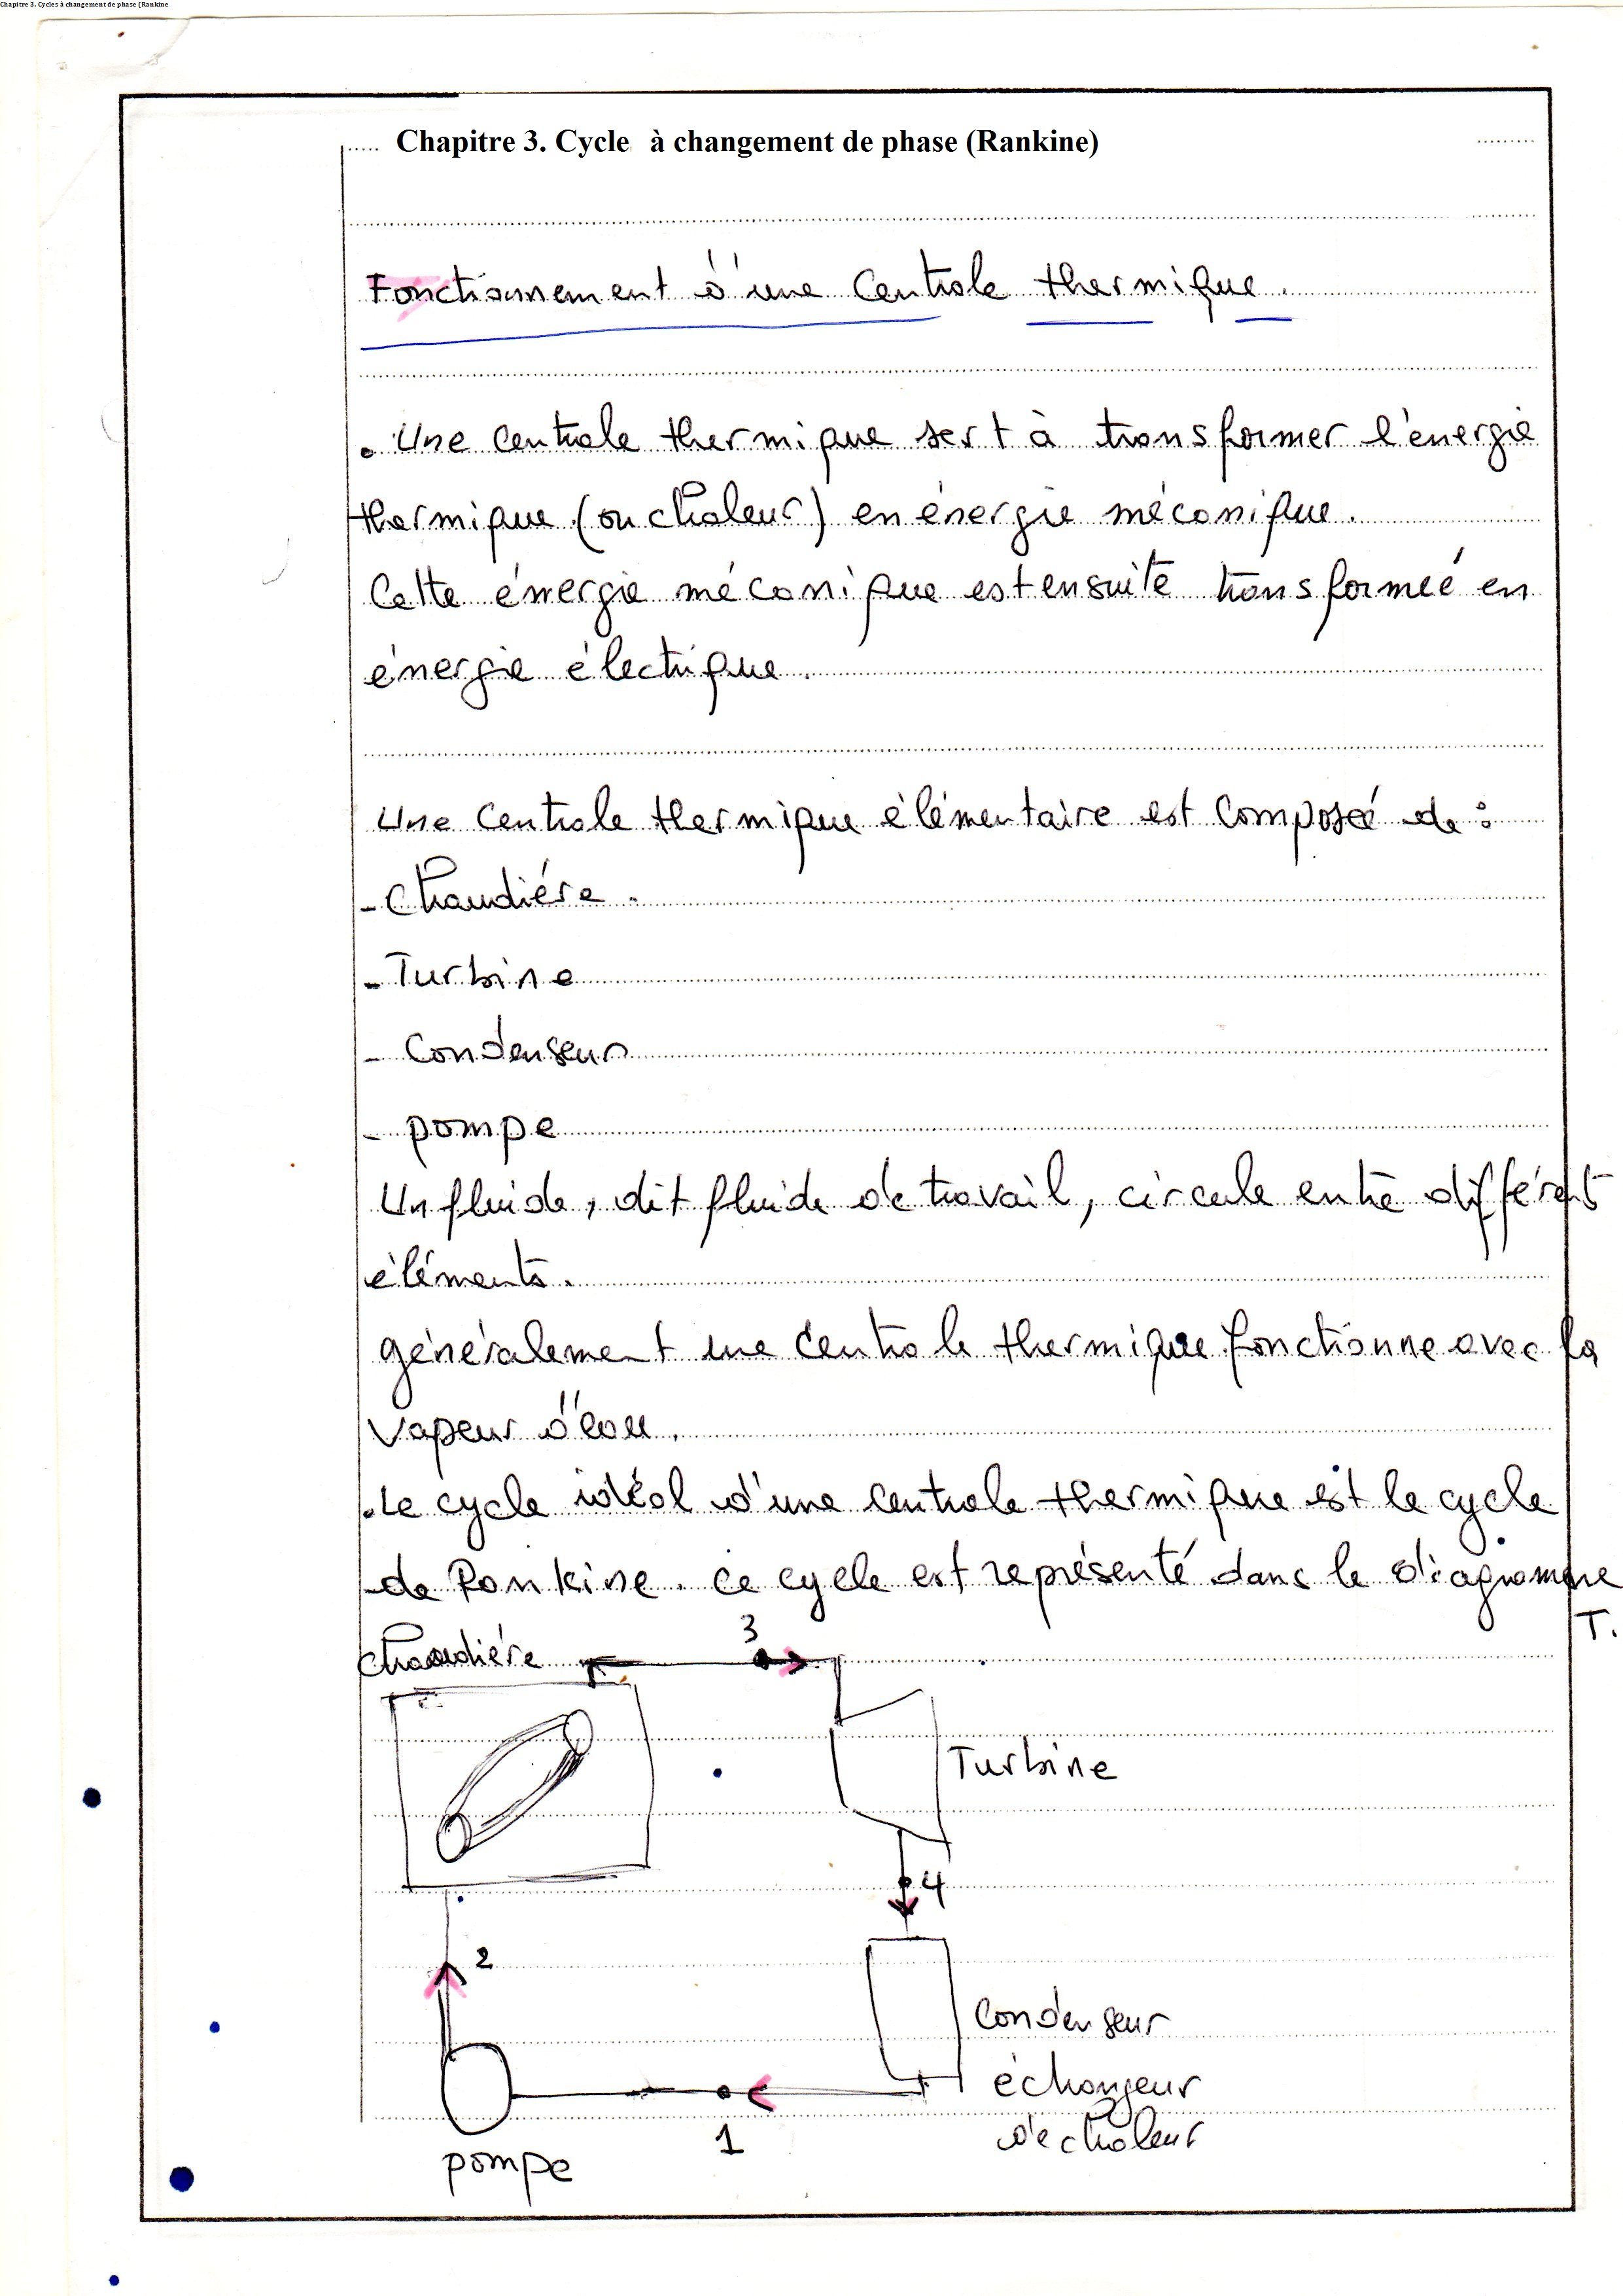 Chapitre 3. Cycles à changement de phase (Rankine
Chapitre 3. Cycle à changement de phase (Rankine)
Fonctionnement d'une Centrale thermique.
. Une centrale thermique sert à transformer l'énergie
thermique (ou chaleur) en énergie mécanique.
Cette énergie mécanique est ensuite transformée en
énergie électrique.
Une Centrale thermique élémentaire est composée de :
- Chaudiére.
- Turbine
- Condenseur
- pompe
Un fluide, dit fluide de travail, circule entre différents
éléments.
généralement une centrale thermique fonctionne avec la
vapeur d'eau.
. Le cycle idéal d'une centrale thermique est le cycle
de Rankine. ce cycle est représenté dans le diagramme
T.
3
Chaudiére
Turbine
4
2
Condenseur
échangeur
de chaleur
1
pompe